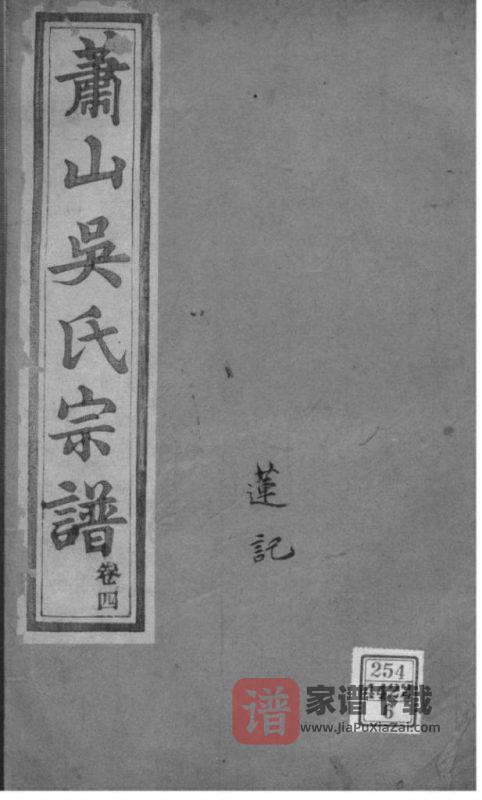 蕭山吳氏宗譜
卷四
蓮記
254
1422
6
谱 家谱下载
www.jiaPuXiaZai.com